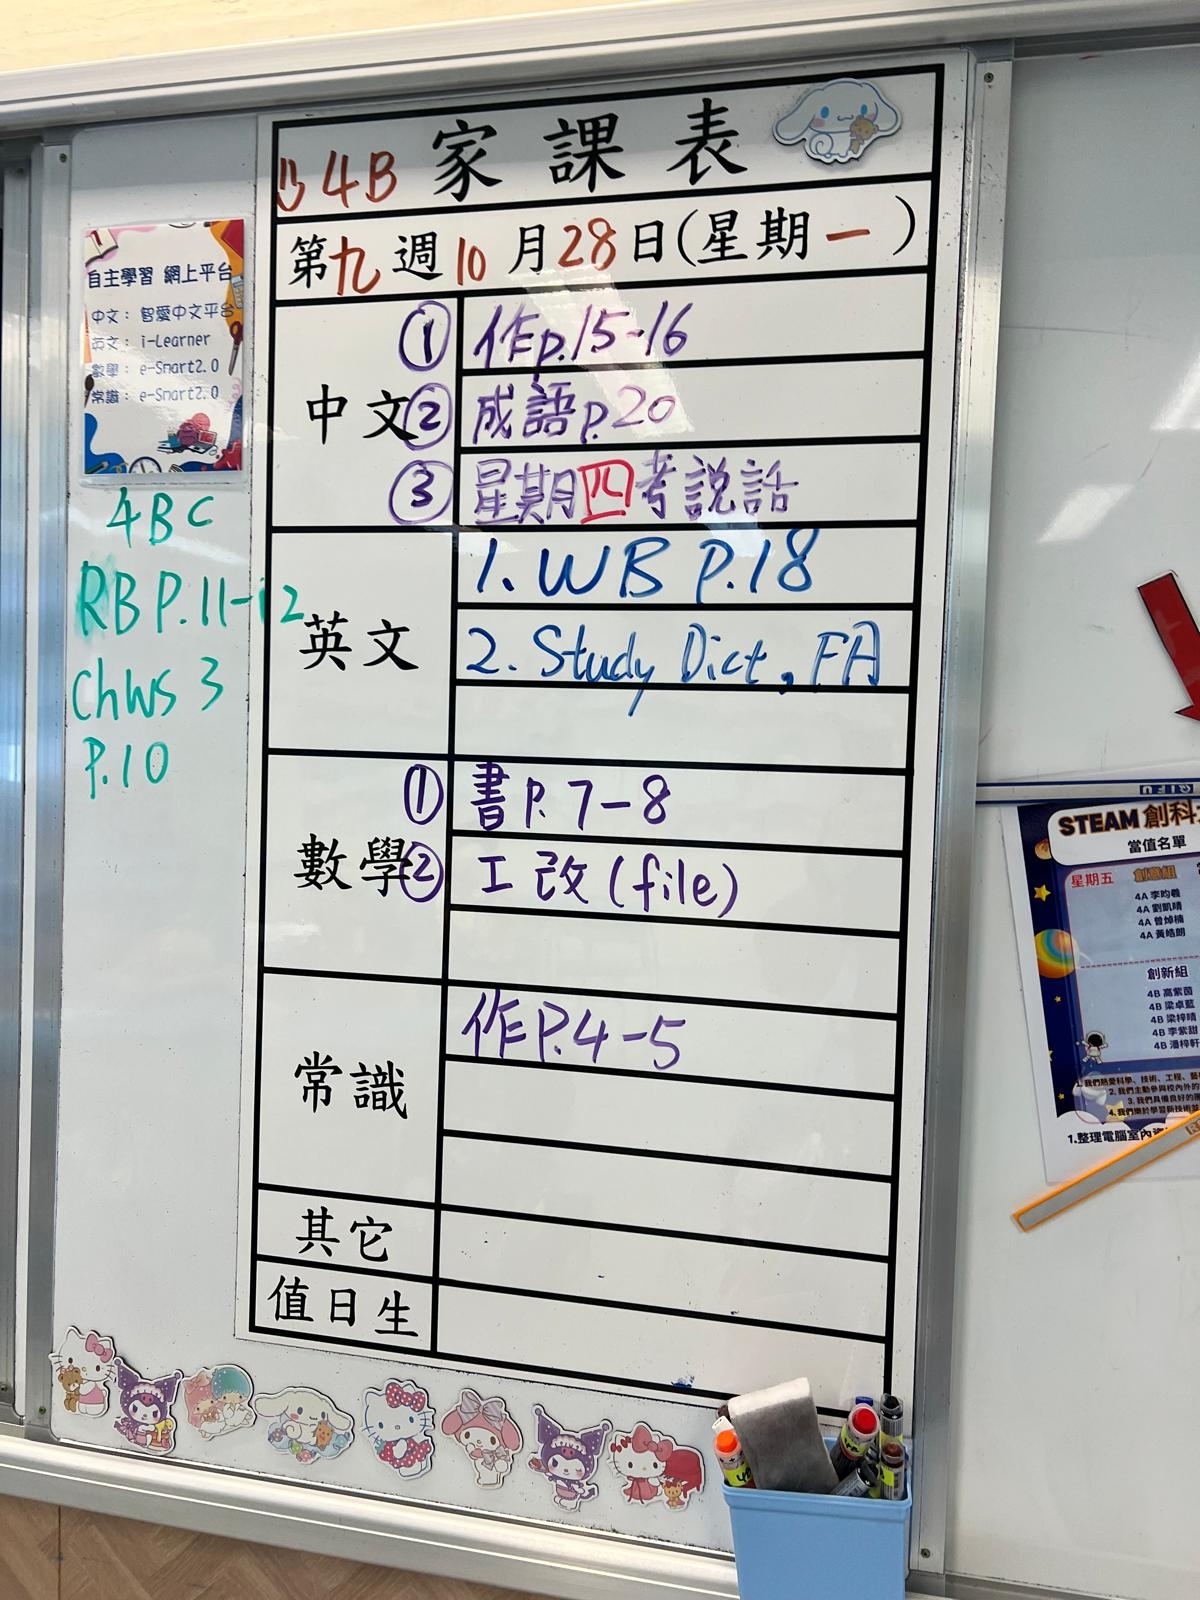 4B 家課表
第九週10月28日(星期一)
中文
① 作p.15-16
② 成語p.20
③ 星期四考說話
英文
1. WB P.18
2. Study Dict, FA
數學
① 書P.7-8
② 工改(file)
常識
作P.4-5
其它
值日生
自主學習 網上平台
中文: 智愛中文平台
英文: i-Learner
數學: e-Smart2.0
常識: e-Smart2.0
4BC
RB P.11-12
ChWS 3
P.10
STEAM 創科
當值名單
星期五 創意組
4A 李昀羲
4A 劉凱晴
4A 曾焯楠
4A 黃皓朗
創新組
4B 高紫茵
4B 梁卓藍
4B 梁梓晴
4B 李紫甜
4B 潘梓軒
1. 我們熱愛科學、技術、工程、藝
2. 我們主動參與校內外的
3. 我們具備良好的
4. 我們樂於學習新技術
1.整理電腦室內